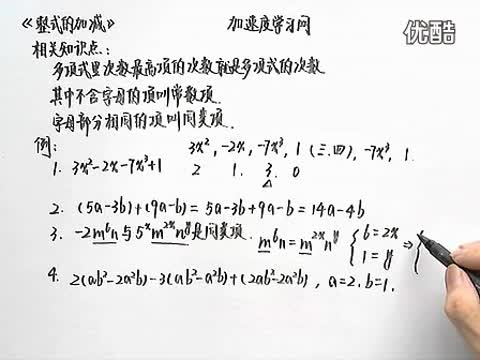 《整式的加减》 加速度学习网
优酷
相关知识点:
多项式里次数最高项的次数就是多项式的次数
其中不含字母的项叫常数项.
字母部分相同的项叫同类项.
例: 3x², -2x, -7x³, 1 (三.四), -7x³, 1.
1. 3x²-2x-7x³+1 2 1. 3. 0
2. (5a-3b)+(9a-b)=5a-3b+9a-b=14a-4b
3. -2m⁶n与5ˣm²ˣnʸ是同类项. m⁶n=m²ˣnʸ { 6=2x ⇒ {
1=y
4. 2(ab²-2a²b)-3(ab²-a²b)+(2ab²-2a²b), a=2.b=1.